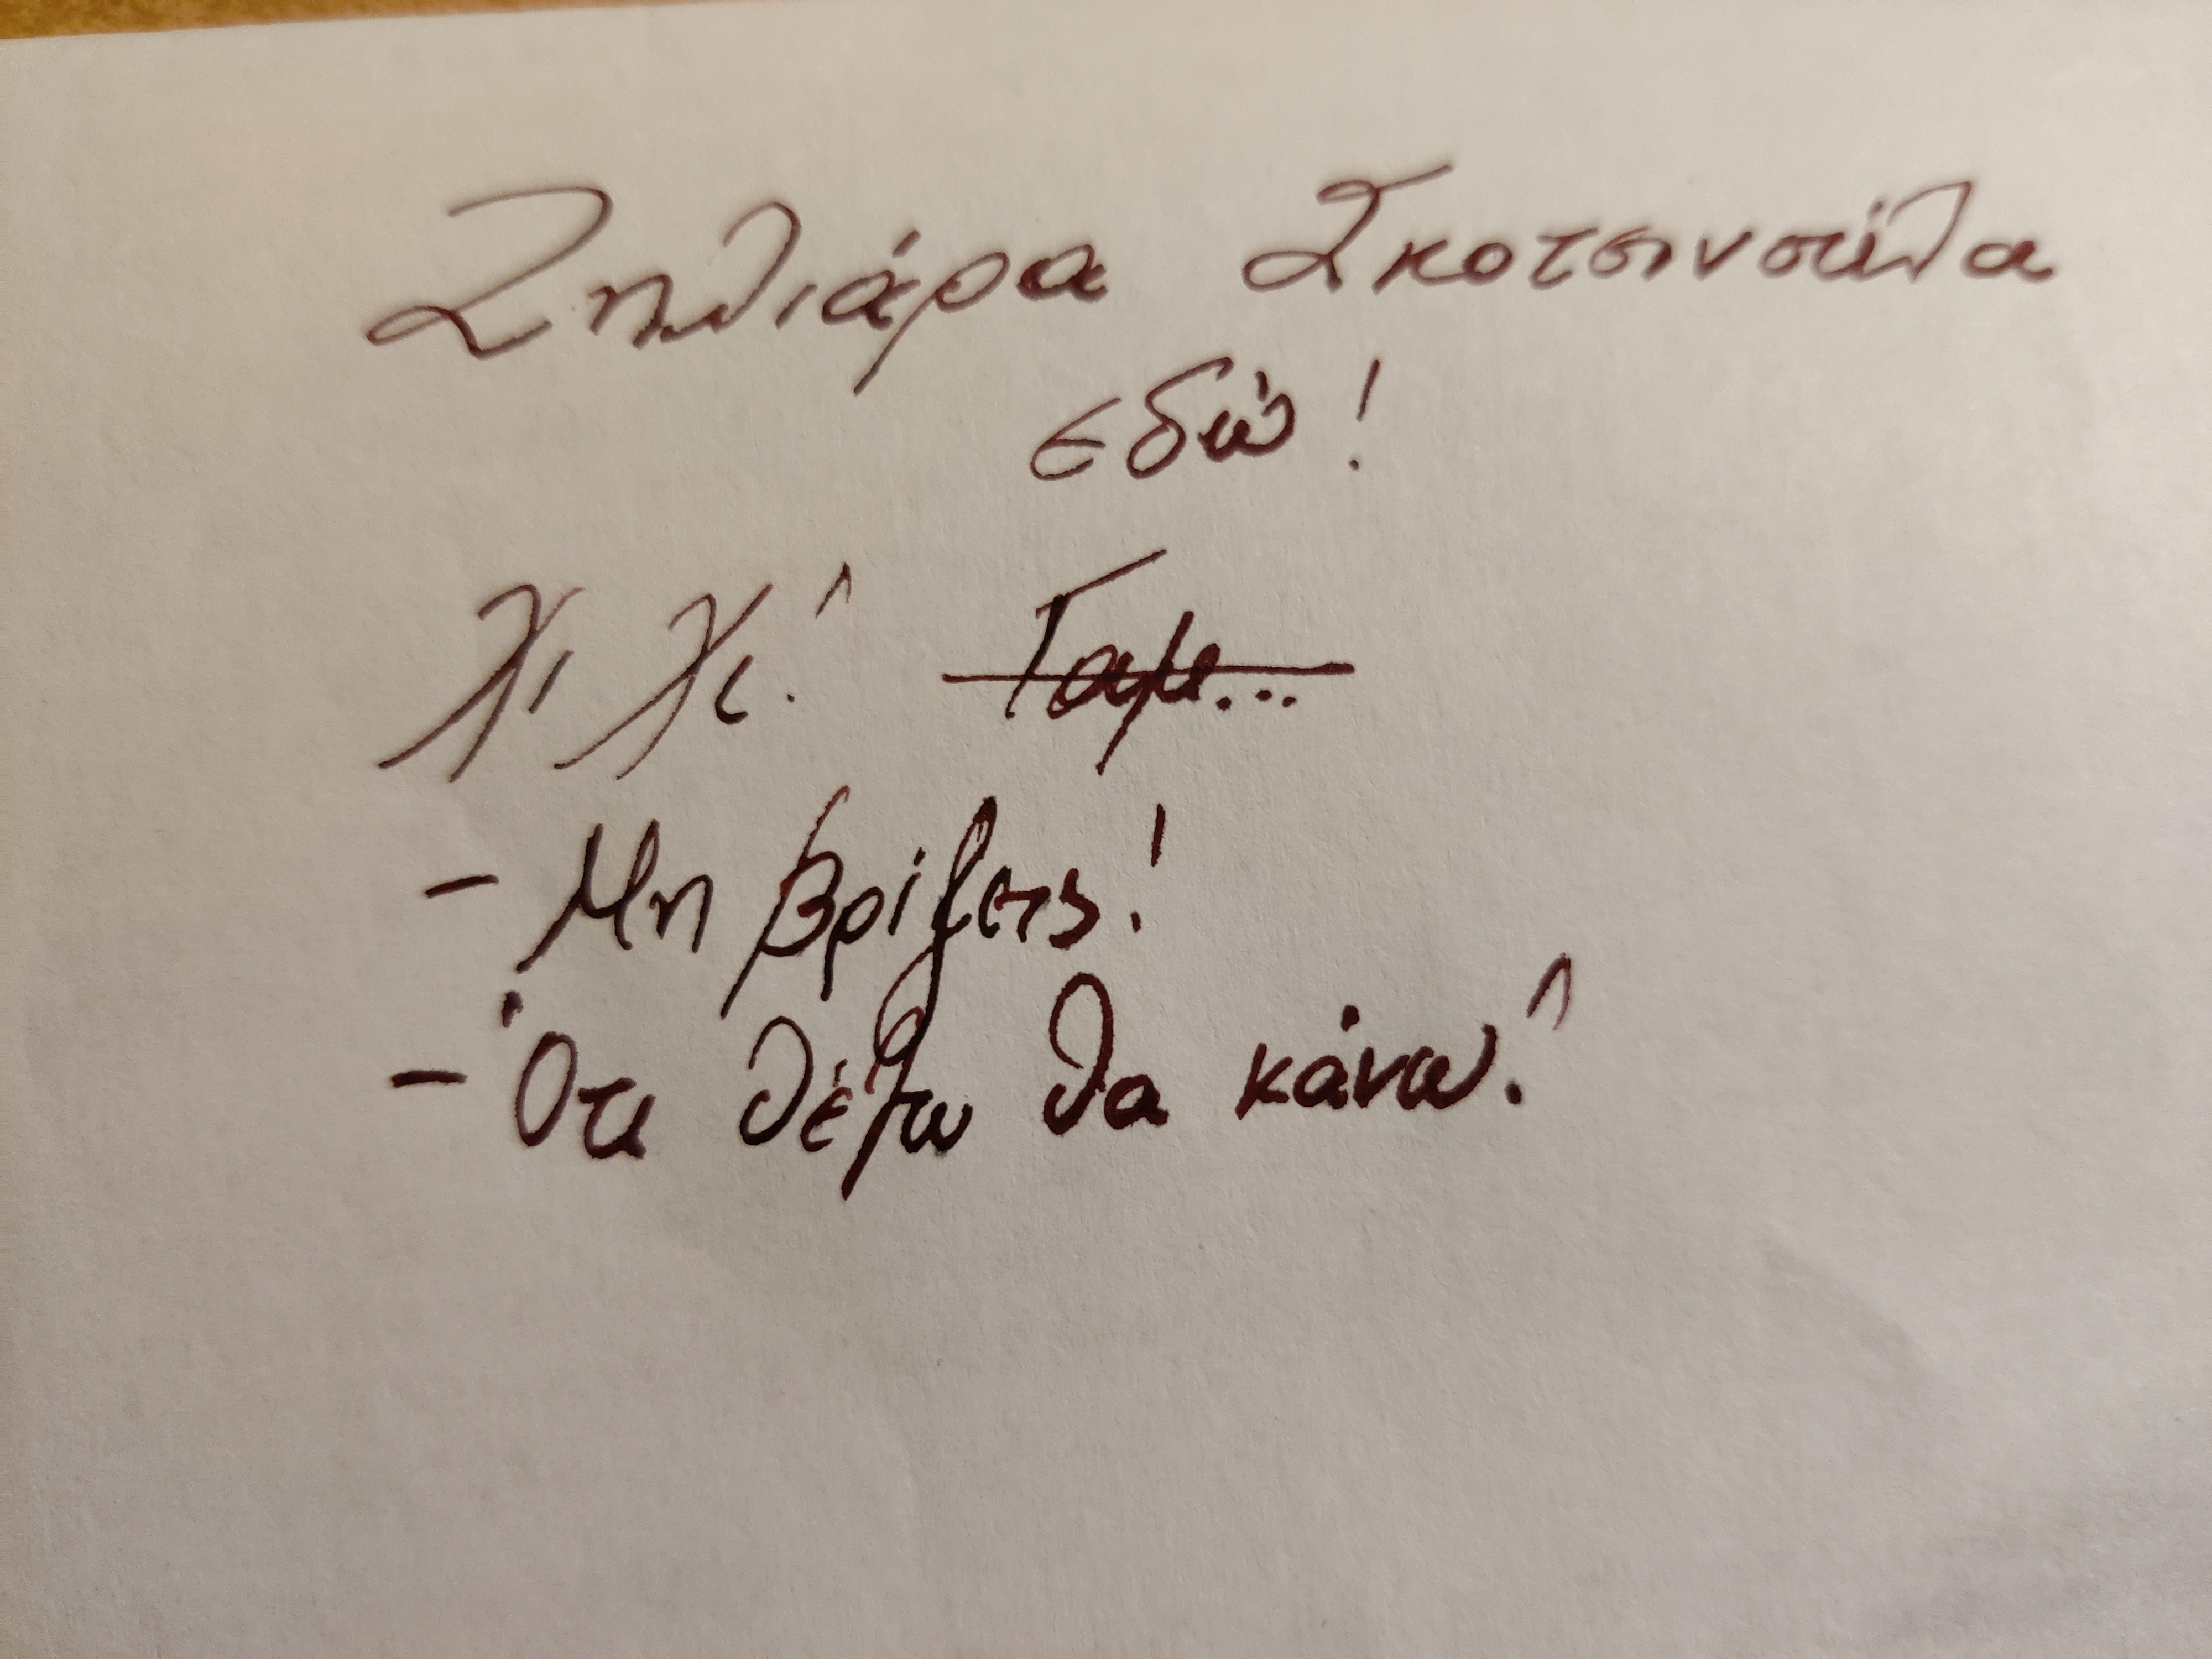 Ζηλιάρα Σκοτεινούλα
εδώ!
Χι Χι! Γαμ...
- Μη βρίζεις!
- Ότι θέλω θα κάνω!